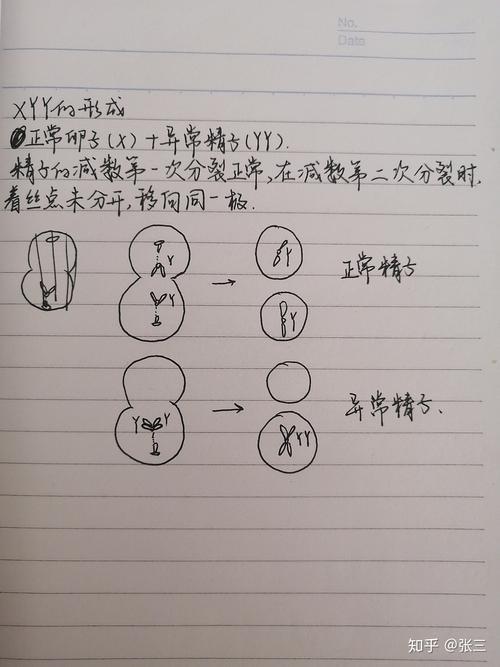 No.
Date
XYY的形成
正常卵子(X)+异常精子(YY).
精子的减数第一次分裂正常,在减数第二次分裂时,
着丝点未分开,移向同一极.
Y
Y
Y
Y
正常精子
Y Y
YY
异常精子.
知乎 @张三